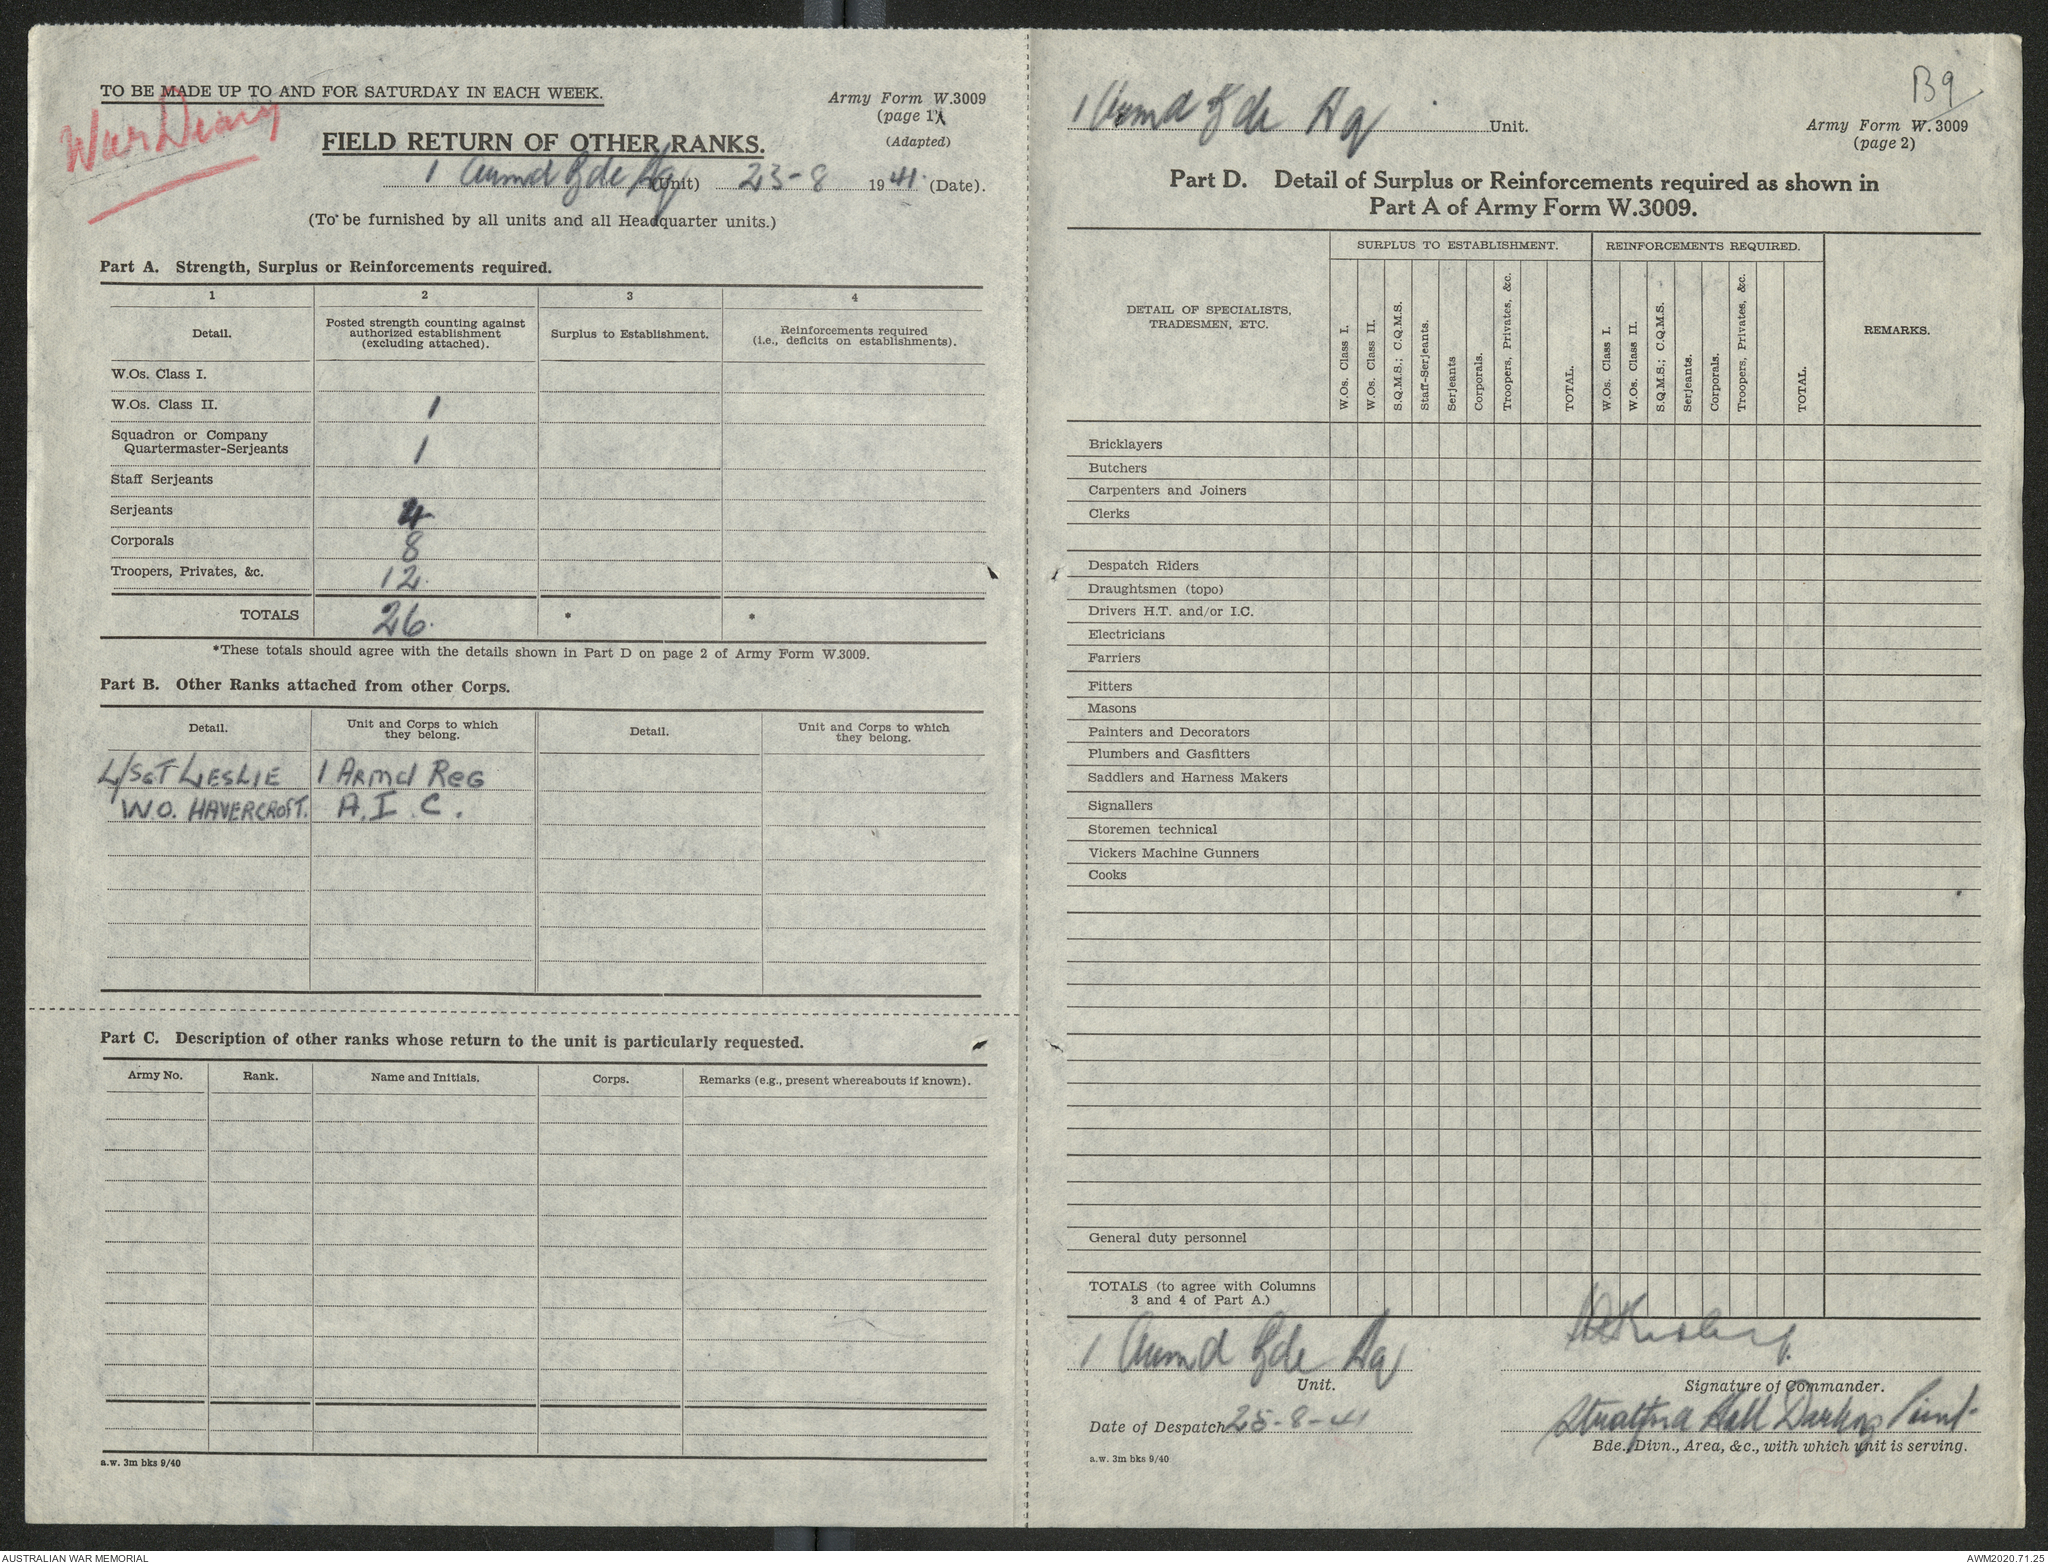 TO BE MADE UP TO AND FOR SATURDAY IN EACH WEEK.
Army Form W.3009
(page 1)
War Diary
FIELD RETURN OF OTHER RANKS.
(Adapted)
1 Armd Bde Hq (Unit) 23-8 1941. (Date).
(To be furnished by all units and all Headquarter units.)
Part A. Strength, Surplus or Reinforcements required.
1 2 3 4
Detail.
Posted strength counting against
authorized establishment
(excluding attached).
Surplus to Establishment.
Reinforcements required
(i.e., deficits on establishments).
W.Os. Class I.
W.Os. Class II. 1
Squadron or Company
Quartermaster-Serjeants 1
Staff Serjeants
Serjeants 4
Corporals 8
Troopers, Privates, &c. 12.
TOTALS 26. * *
*These totals should agree with the details shown in Part D on page 2 of Army Form W.3009.
Part B. Other Ranks attached from other Corps.
Detail.
Unit and Corps to which
they belong.
Detail.
Unit and Corps to which
they belong.
L/SGT LESLIE 1 ARMd REG
W.O. HAVERCROFT. A.I.C.
Part C. Description of other ranks whose return to the unit is particularly requested.
Army No. Rank. Name and Initials. Corps. Remarks (e.g., present whereabouts if known).
a.w. 3m bks 9/40
B9
1 Armd Bde Hq Unit.
Army Form W.3009
(page 2)
Part D. Detail of Surplus or Reinforcements required as shown in
Part A of Army Form W.3009.
DETAIL OF SPECIALISTS,
TRADESMEN, ETC.
SURPLUS TO ESTABLISHMENT.
W.Os. Class I.
W.Os. Class II.
S.Q.M.S.; C.Q.M.S.
Staff-Serjeants.
Serjeants
Corporals.
Troopers, Privates, &c.
TOTAL.
REINFORCEMENTS REQUIRED.
W.Os. Class I.
W.Os. Class II.
S.Q.M.S.; C.Q.M.S.
Serjeants.
Corporals.
Troopers, Privates, &c.
TOTAL.
REMARKS.
Bricklayers
Butchers
Carpenters and Joiners
Clerks
Despatch Riders
Draughtsmen (topo)
Drivers H.T. and/or I.C.
Electricians
Farriers
Fitters
Masons
Painters and Decorators
Plumbers and Gasfitters
Saddlers and Harness Makers
Signallers
Storemen technical
Vickers Machine Gunners
Cooks
General duty personnel
TOTALS (to agree with Columns
3 and 4 of Part A.)
1 Armd Bde Hq
Unit.
Signature of Commander.
Date of Despatch 25-8-41
Hall Darling Point
Bde., Divn., Area, &c., with which unit is serving.
a.w. 3m bks 9/40
AUSTRALIAN WAR MEMORIAL
AWM2020.71.25